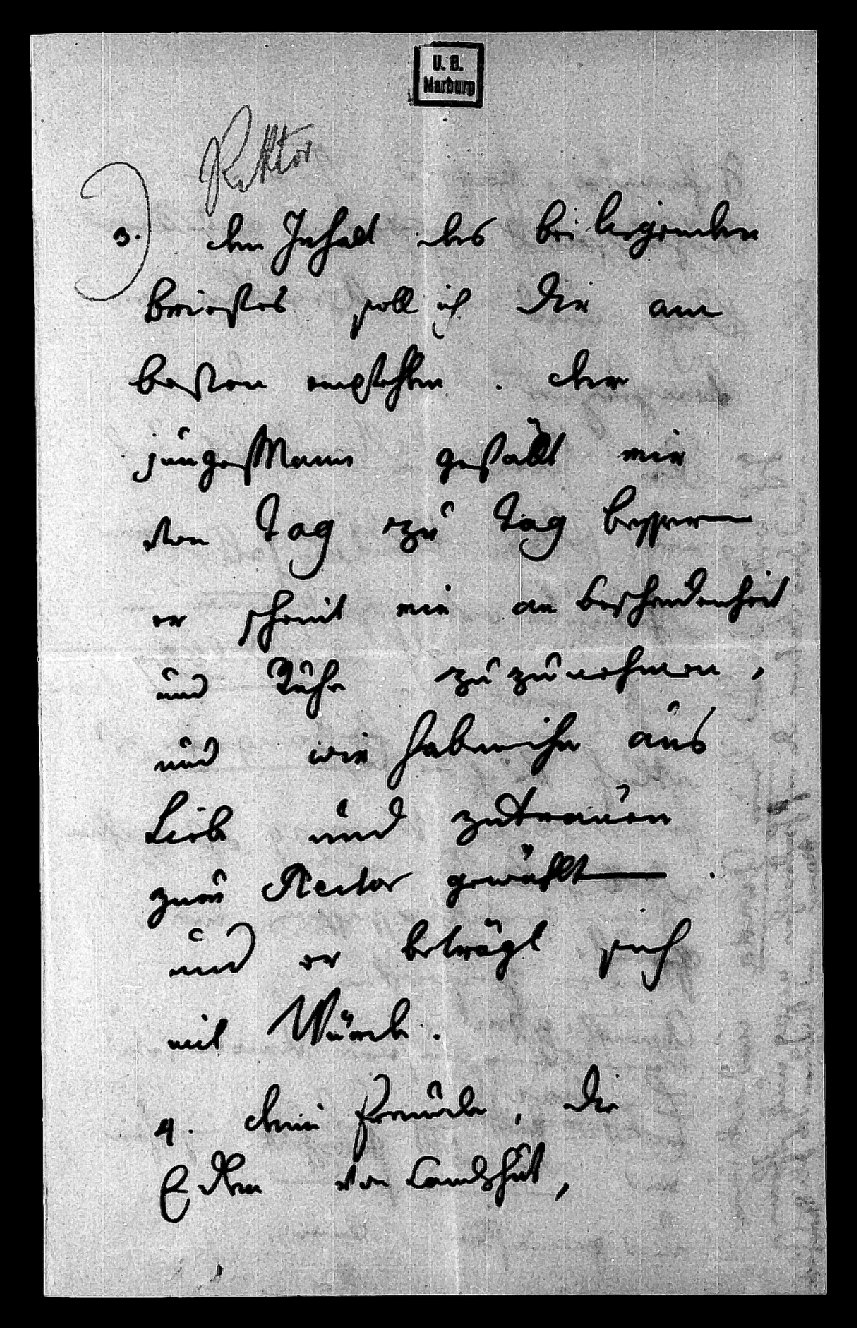 U. B.
Marburg
Rektor
3. den Inhalt des bei liegenden
briefes soll ich Dir am
besten empfehlen. der
junge Mann gefällt mir
von Tag zu Tag besser
er scheint mir an bescheidenheit
und Ruhe zuzunehmen,
und wir haben ihn aus
Lieb und zutrauen
zum Rector gewählt.
und er beträgt sich
mit Würde.
4. dein freunde, die
Edlen von Landshut,